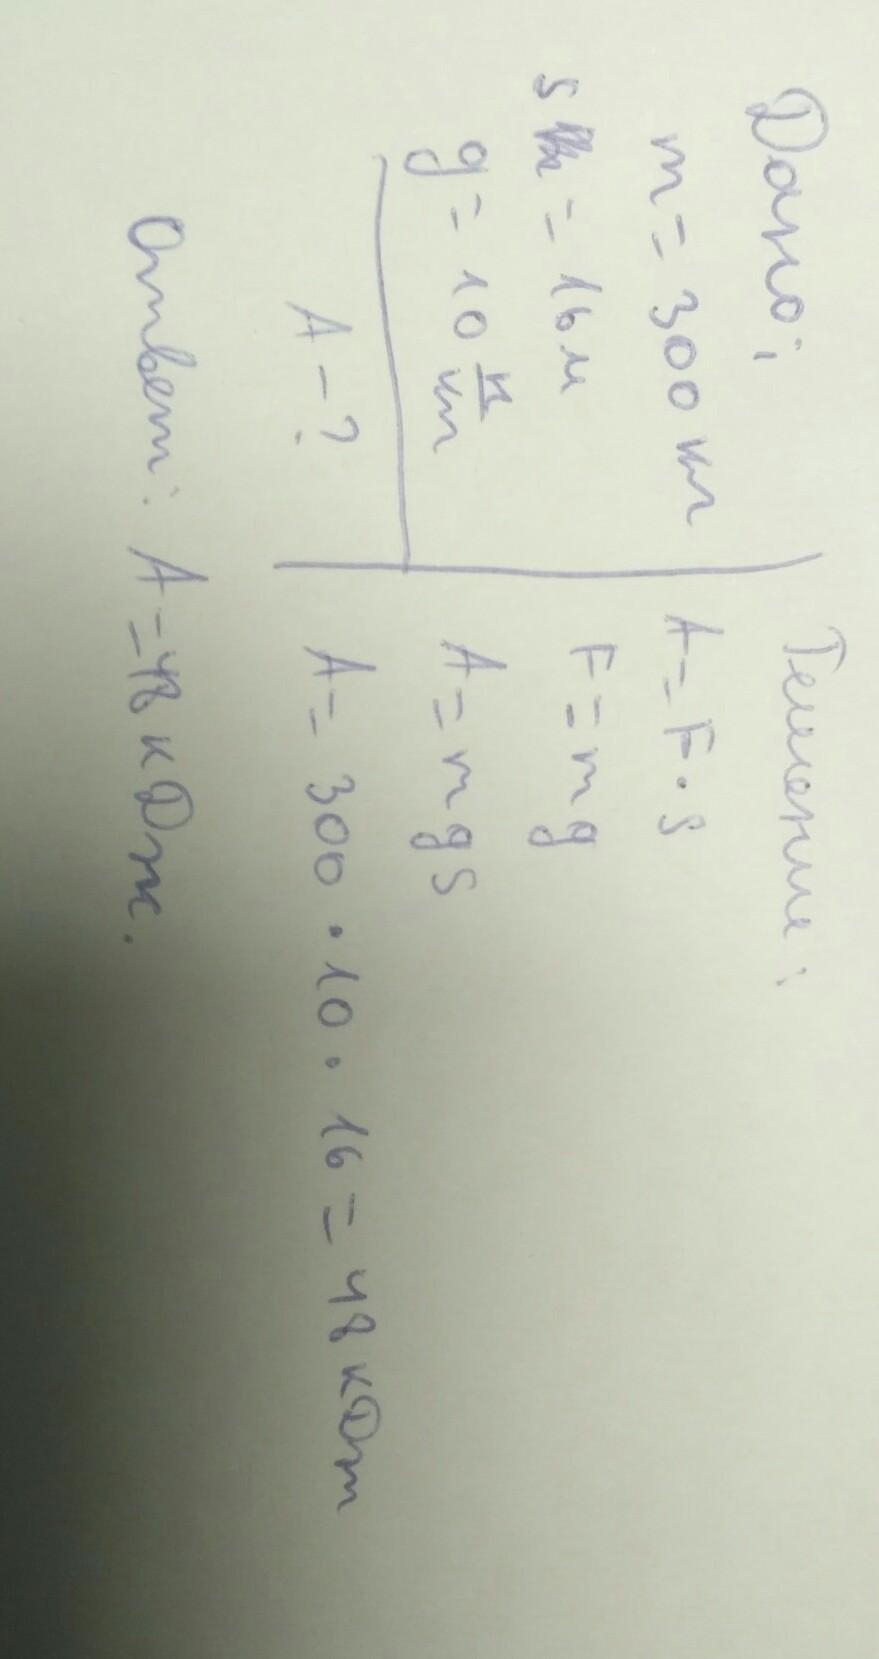 Дано:
m = 300 кг
s = 16 м
g = 10 н/кг
A - ?
Решение:
A = F · s
F = mg
A = mgs
A = 300 · 10 · 16 = 48 кДж
Ответ: A = 48 кДж.